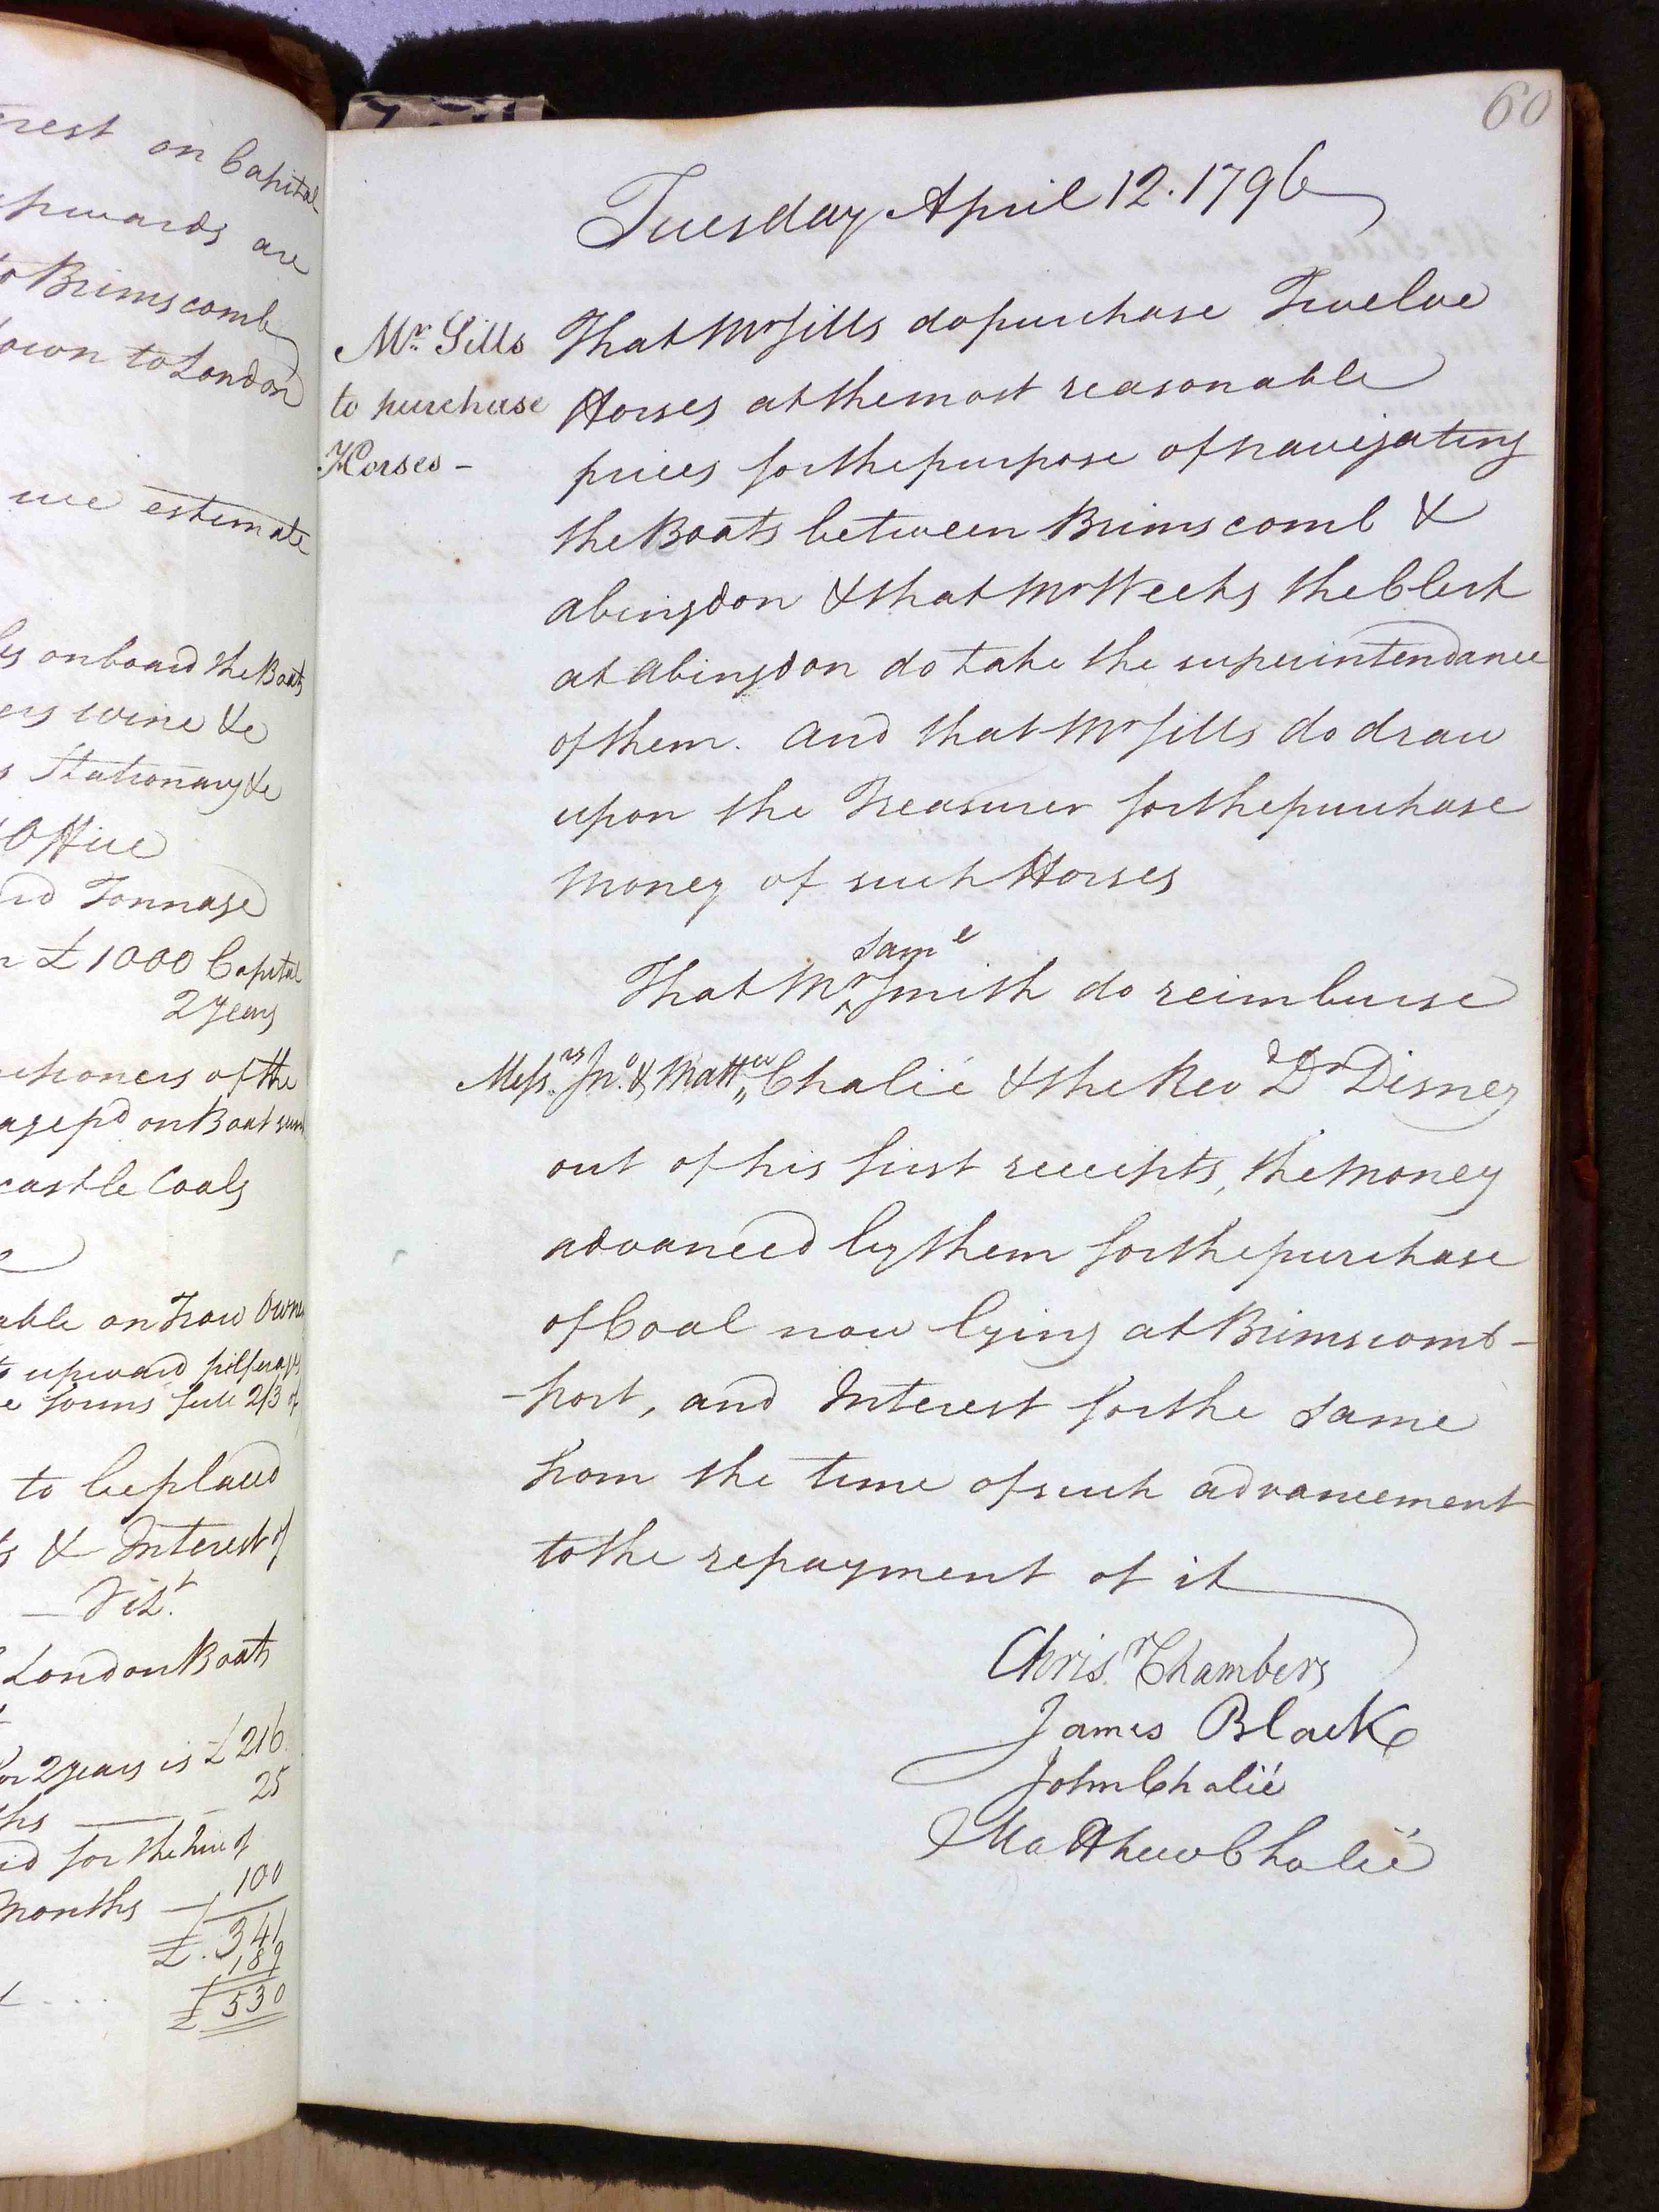 erest on Capital
upwards are
to Brimscomb
down to London
we estimate
on board the Boats
wine &c
Stationary &c
Office
Tonnage
£1000 Capital
2 years
of the
on Boat
castle Coals
able on Trow Owners
upward pilferages
forms full 2/3 of
to be placed
& Interest of
Vizt.
London Boats
for 2 years is £216
25
for the hire of
100
months
£. 341
189
£ 530
60
Tuesday April 12. 1796
Mr. Sills
to purchase
Horses -
That Mr Sills do purchase Twelve
Horses at the most reasonable
prices for the purpose of navigating
the Boats between Brimscomb &
Abingdon & that Mr Weeks the Clerk
at Abingdon do take the superintendance
of them. And that Mr Sills do draw
upon the Treasurer for the purchase
Money of such Horses
Saml
That Mr ‸ Smith do reimburse
Messrs. Jno. & Mattw Chalié & the Revd Dr Disney
out of his first receipts, the Money
advanced by them for the purchase
of Coal now lying at Brimscomb-
-port, and Interest for the same
from the time of such advancement
to the repayment of it
Chrisr. Chambers
James Black
John Chalié
Matthew Chalié